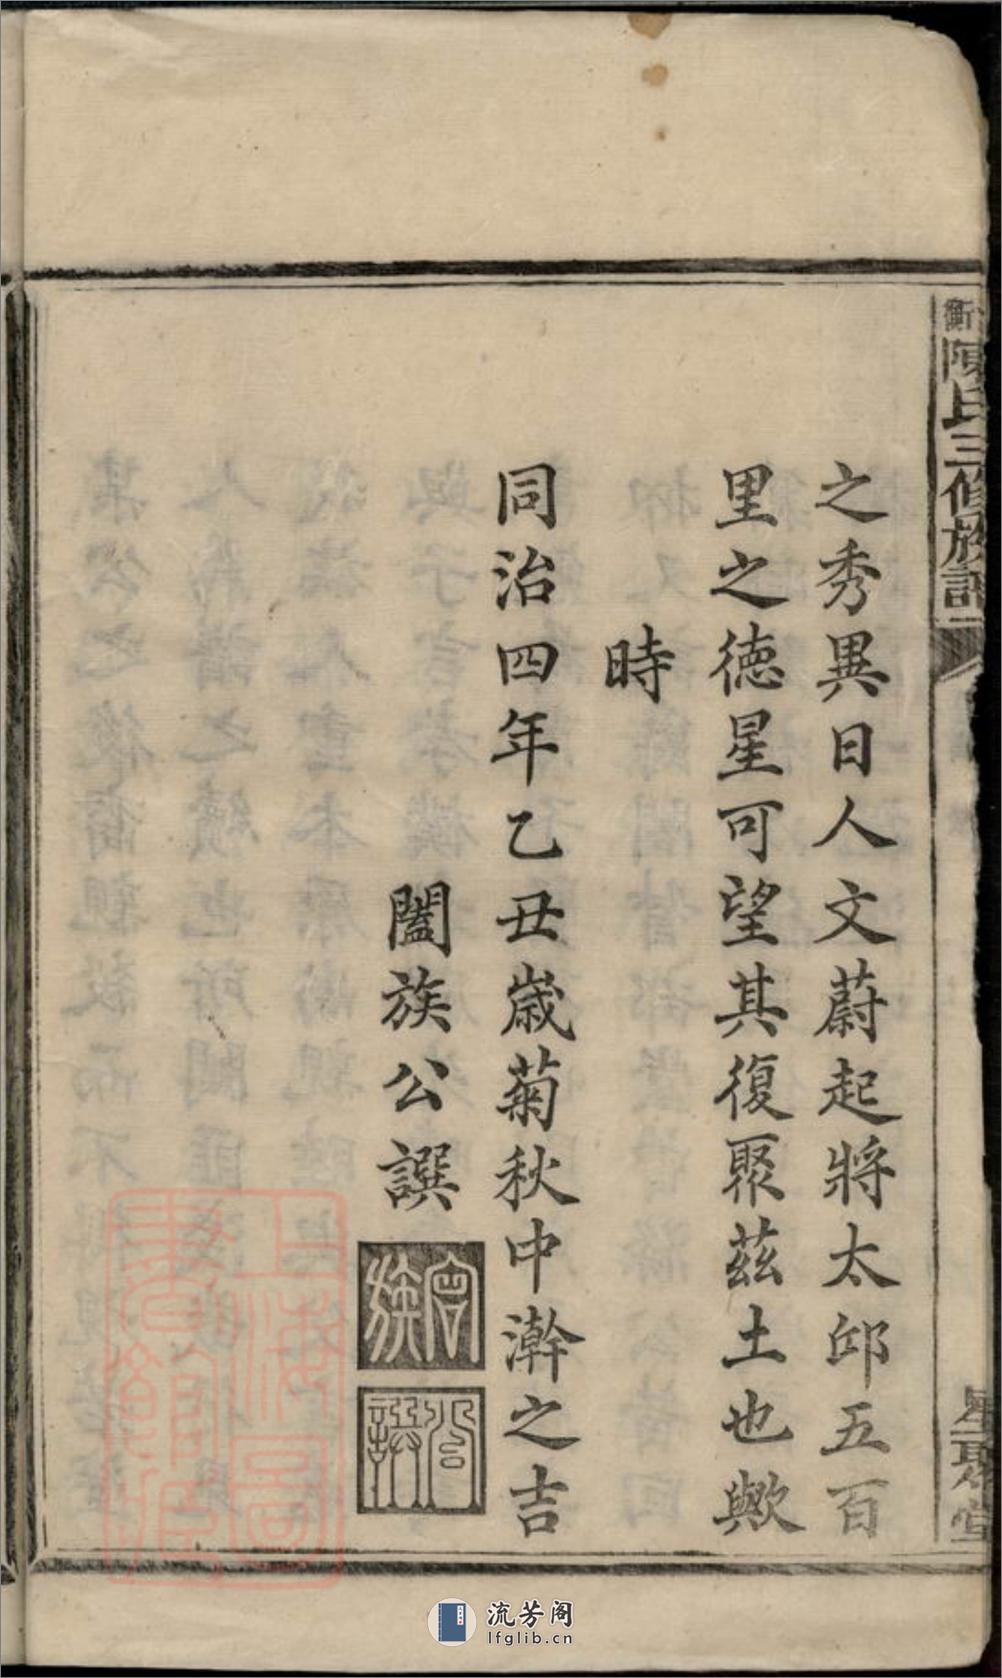 衡陳氏三修族譜
星聚堂
之秀異日人文蔚起將太邱五百
里之德星可望其復聚茲土也歟
時
同治四年乙丑歲菊秋中澣之吉
闔族公譔
闔族
公譔
上海圖書館藏
流芳阁
lfglib.cn